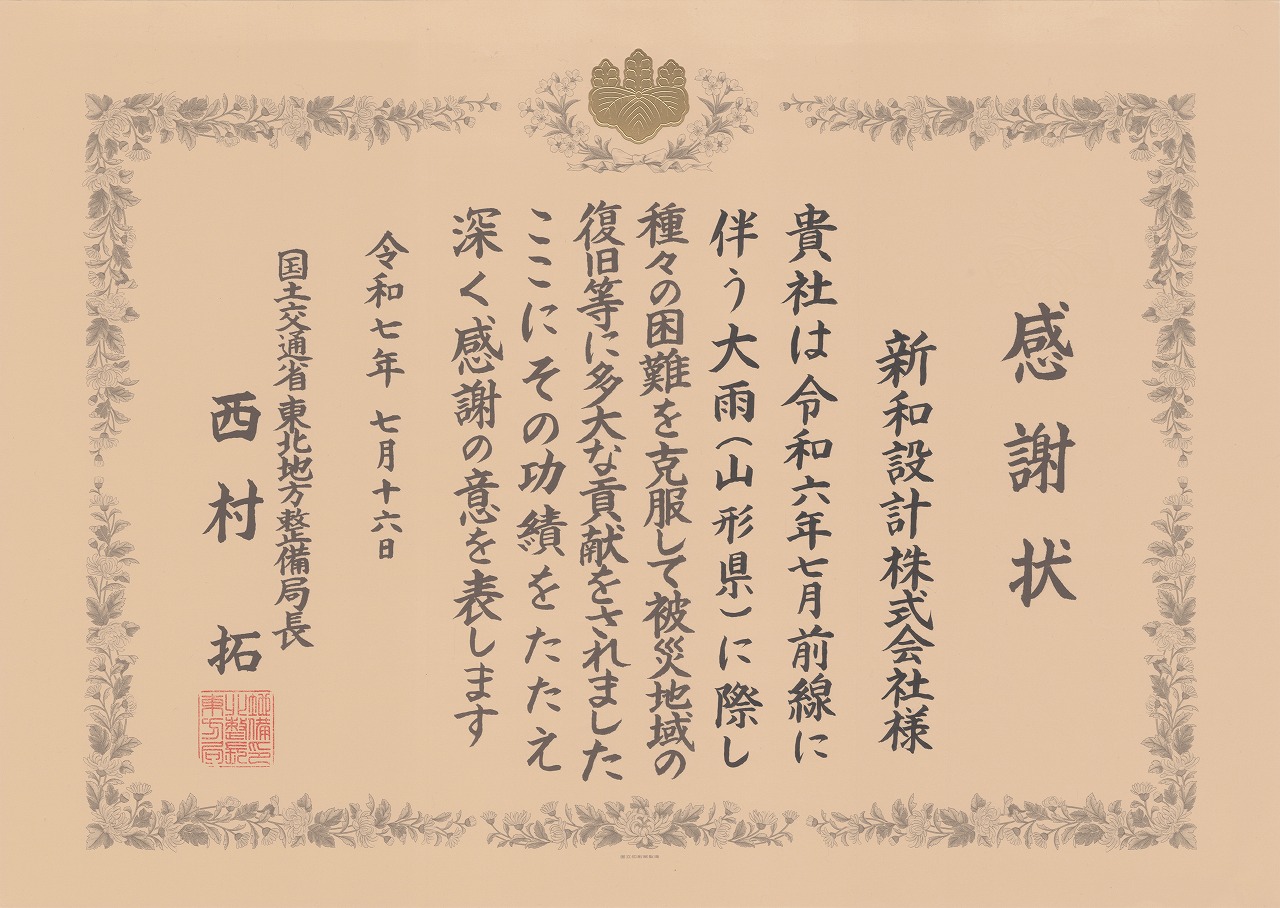 感謝状
新和設計株式会社様
貴社は令和六年七月前線に
伴う大雨(山形県)に際し
種々の困難を克服して被災地域の
復旧等に多大な貢献をされました
ここにその功績をたたえ
深く感謝の意を表します
令和七年 七月十六日
国土交通省東北地方整備局長
西村 拓